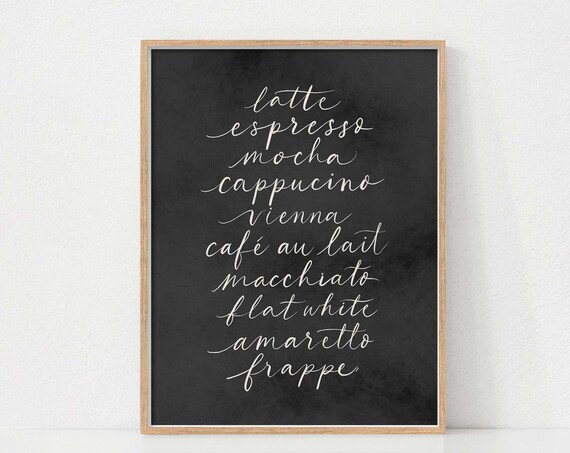 latte
espresso
mocha
cappucino
vienna
café au lait
macchiato
flat white
amaretto
frappe